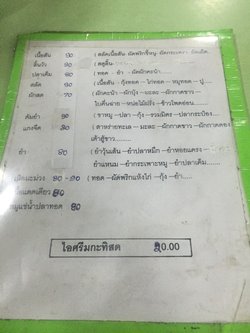 เนื้อสัน 90 ( สลัดเนื้อสัน ผัดพริกขี้หนู
ลิ้นวัว 90 ( สตูลิ้น
ปลาเค็ม 80 ( ทอด – ยำ – ผัดผักคะน้า
สลัด 90 ( เนื้อสัน – กุ้งทอด – ไก่ทอด – หมูทอด – ปู
ผักสด 70 ( ผักคะน้า – ผักบุ้ง – มะละ – ผักกาดขาว –
ใบตื่นฉ่าย – หน่อไม้ฝรั่ง – ข้าวโพดอ่อน
ต้มยำ 90 ( ขาหมู – ปลา – กุ้ง – รวมมิตร – ปลากระป๋อง
แกงจืด 80 ( สาหร่ายทะเล – มะละ – ผักกาดขาว – ผักกาดดอง
เต้าหู้ขาว
ยำ 80 ( ยำวุ้นเส้น – ยำปลาหมึก – ยำหอยแครง –
ยำแหนม – ยำกระเพาะหมู – ยำปลาเค็ม
80 - 90 ( ทอด – ผัดพริกแห้งไก่ – กุ้ง – ยำ
แดดเดียว 80
หมูแช่น้ำปลาทอด 80
ไอศรีมกะทิสด 20.00